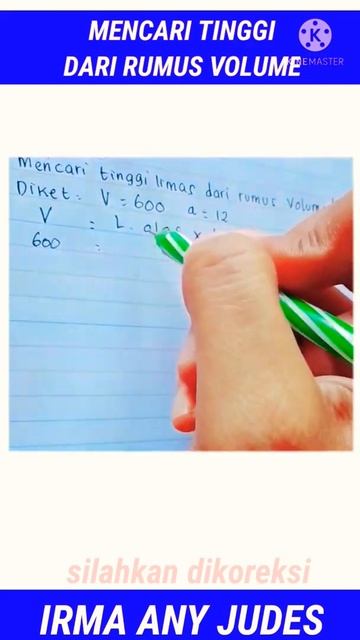 MENCARI TINGGI
DARI RUMUS VOLUME
KINEMASTER
Mencari tinggi limas dari rumus Volum
Diket : V = 600 a = 12
V = L. alas x
600 =
silahkan dikoreksi
IRMA ANY JUDES